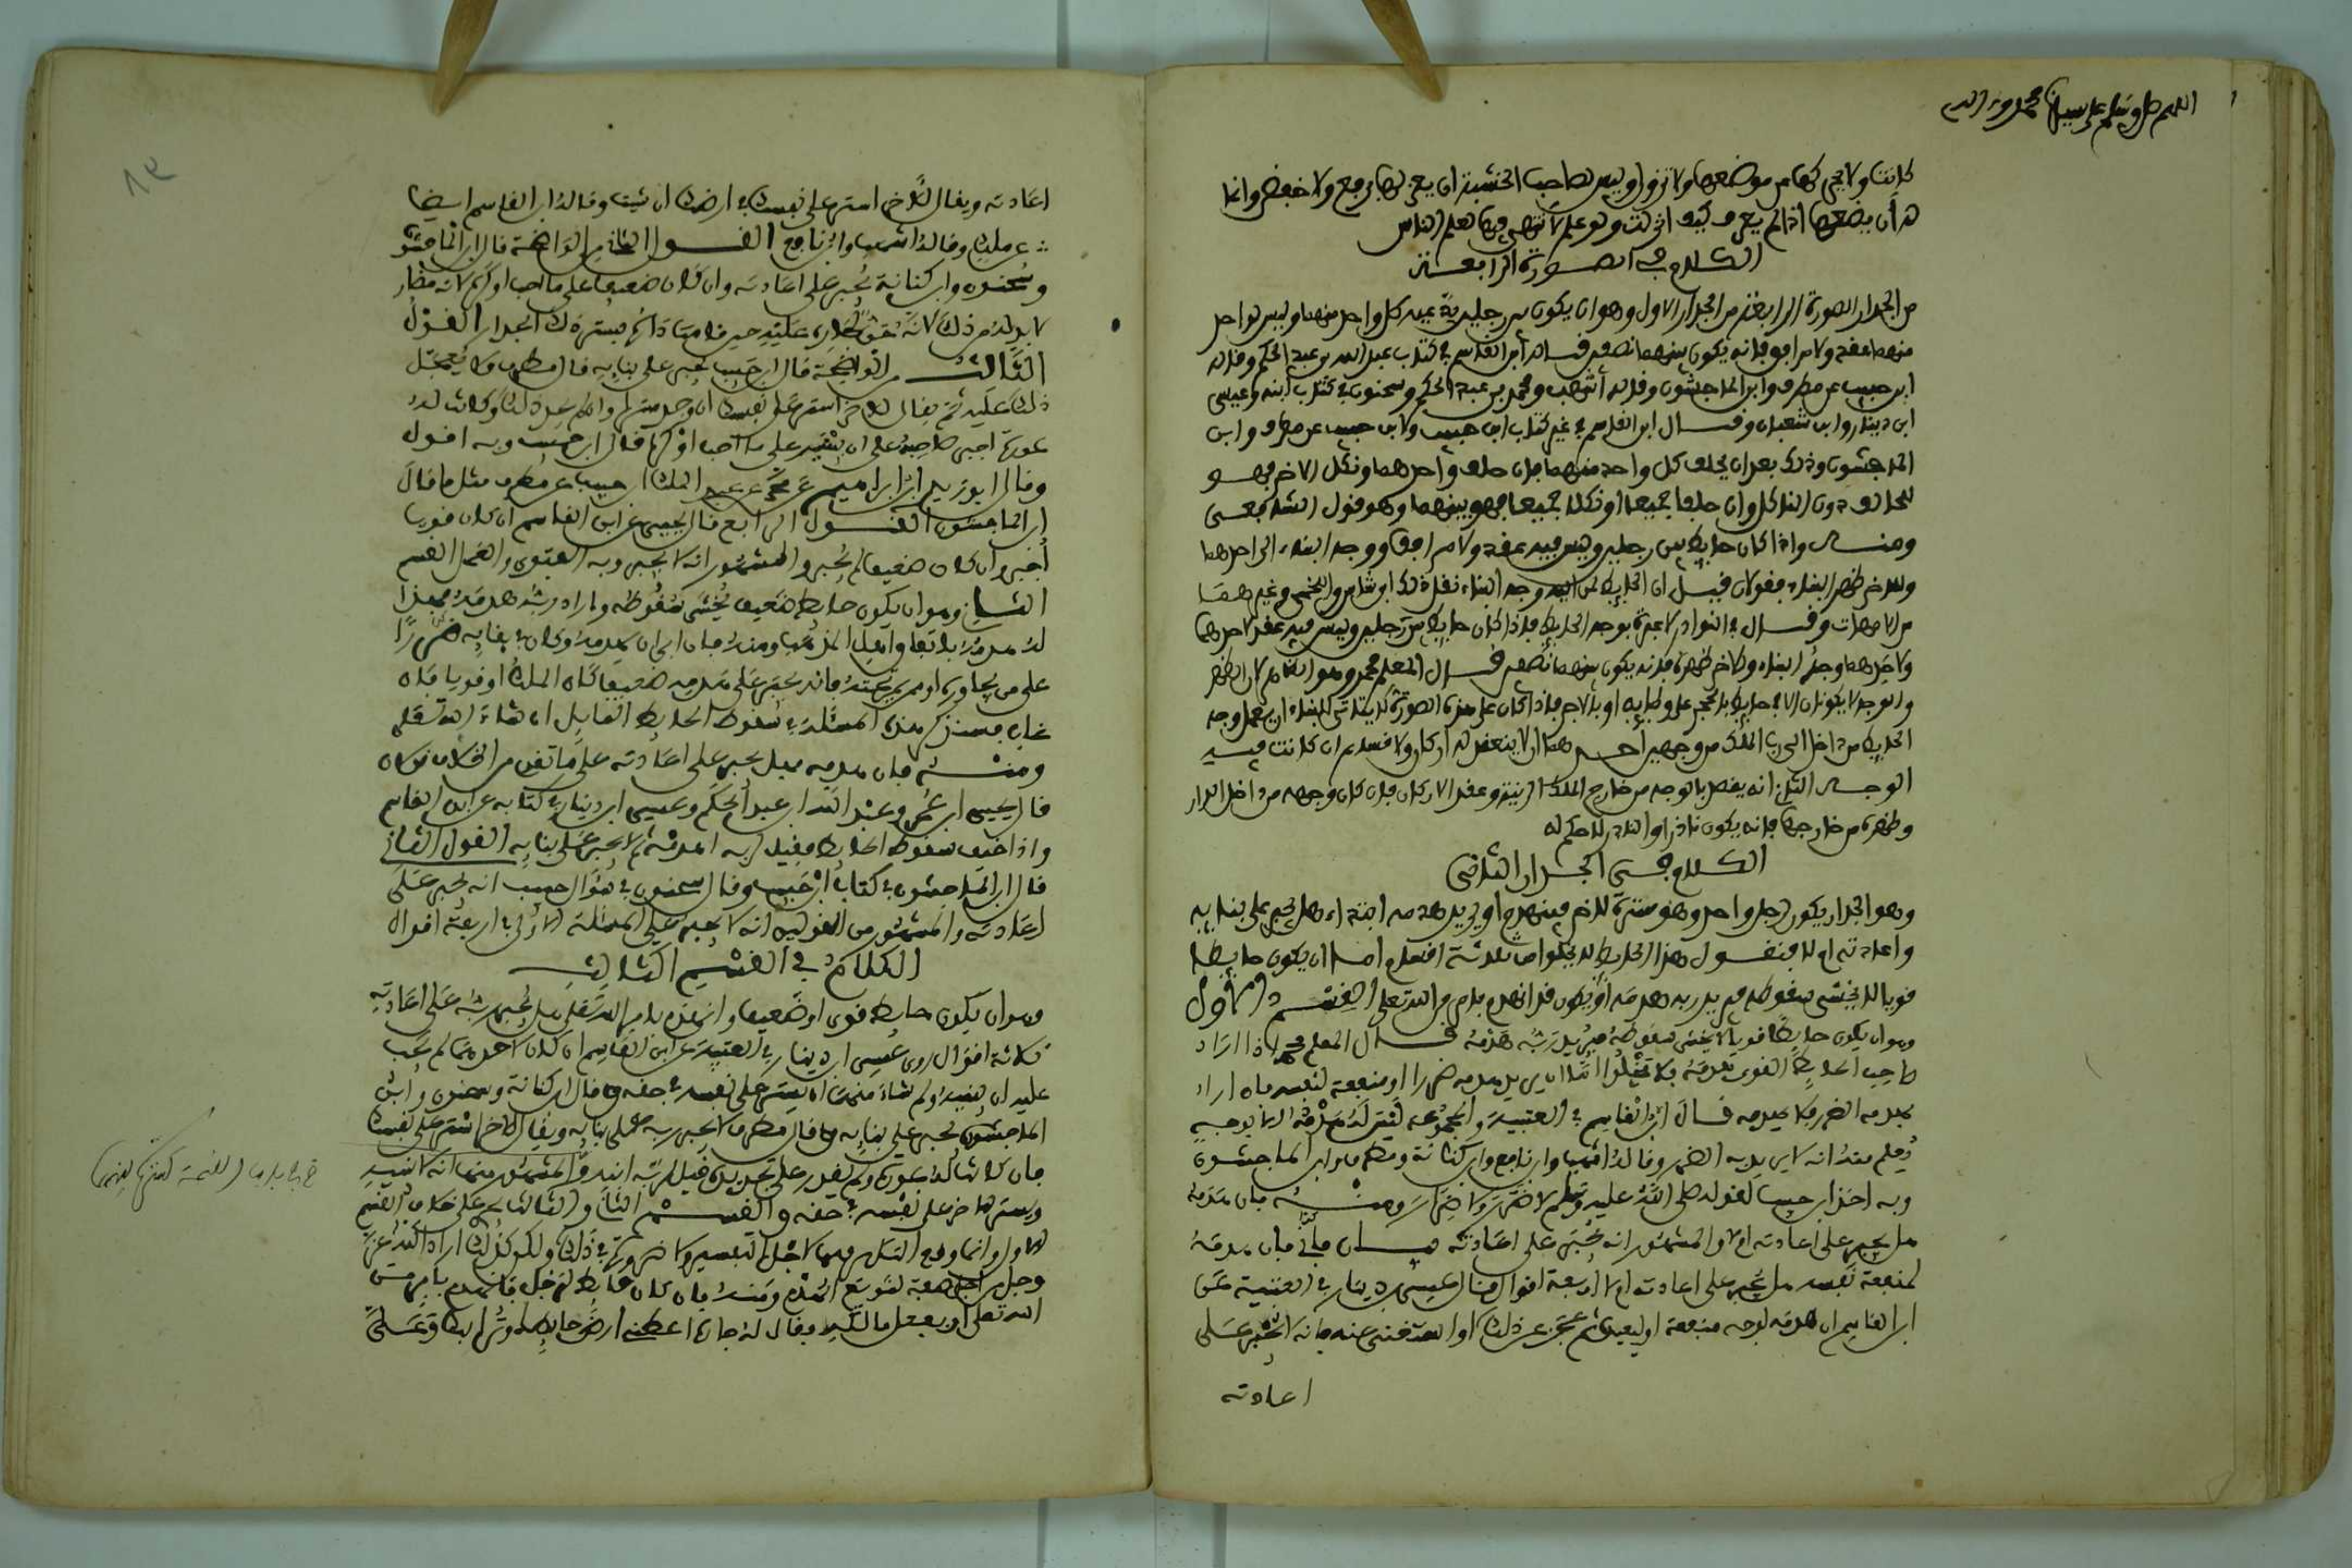 اللهم صل وسلم على سيدنا محمد وءاله
كانت ولا يحركها من موضعها ولا تزول وليس لصاحب الخشبة ان يغرزها برفع ولا خفض وانما
له أن يضعها اذا لم يعرف كيف انزلت وهو علم لا تنتهي فيها لعلم الناس
الكلام في الصورة الرابعة
من الجدار الصورة الرابعة من الجدار الاول وهو ان يكون بين رجلين يدعيه كل واحد منهما وليس لواحد
منهما عقد ولا مرافق فانه يكون بينهما نصفين قاله ابن القاسم في كتاب عبد الله بن عبد الحكم وقاله
ابن حبيب عن مطرف وابن الماجشون وقاله أشهب ومحمد بن عبد الحكم وسحنون في كتاب ابنه وعيسى
ابن دينار وابن شعبان وقال ابن القاسم في غير كتاب ابن حبيب ولابن حبيب عن مطرف وابن
الماجشون وذلك بعد ان يحلف كل واحد منهما فان حلف واحدهما ونكل الاخر فهو
للحالف دون الناكل وان حلفا جميعا أو نكلا جميعا فهو بينهما وهو قول الشافعي
ومنه واذا كان حايط بين رجلين وليس فيه عقد ولا مرافق ووجه البناء الى احدهما
وللاخر ظهر البناء فقولان قيل ان الحايط لمن اليه وجه البناء نقل ذلك ابن شاس واللخمي وغيرهما
من الامهات وقال في النوادر لا عبرة بوجه الحايط فاذا كان حايط بين رجلين وليس فيه عقد لاحدهما
ولاحدهما وجه البناء وللاخر ظهره فانه يكون بينهما نصفين قال المعلم محمد وهو الظاهر لان الظهر
والوجه لا يكونان الا في حايط بالحجر على وطايه او بالاجر فاذا كان على هذه الصورة لا يتاتى للبناء ان يعمل وجه
الحايط من داخل الى رب الملك من وجهين احدهما ان لا ينعقد له اركان ولا قسام ان كانت فيه
الوجه الثاني انه يقصد بالوجه من خارج الملك الزينة وعقد الاركان فان كان وجهه من داخل الدار
وظهره من خارجها فانه يكون نادرا والنادر لا حكم له
الكلام في الجدار الثاني
وهو الجدار يكون لرجل واحد وهو سترة للاخر فينهدم او يريد هدمه ابتداء هل يجبر على بنايه
واعادته ام لا فنقول هذا الحايط لا يخلوا من ثلاثة اقسام اما ان يكون حايطا
قويا لا يخشى سقوطه فيريد ربه هدمه او يكون قد انهدم بامر من الله تعلى القسم الاول
وهو ان يكون حايطا قويا لا يخشى سقوطه فيريد ربه هدمه قال المعلم محمد اذا اراد
صاحب الحايط القوي هدمه فلا تخلوا اما ان يريد بهدمه ضررا او منفعة لنفسه فان اراد
بهدمه الضرر فلا يهدمه قال ابن القاسم في العتبية والمجموعة ليس له هدمه الا لوجه
يُعلم منه انه لا يريد به الضرر وقاله اشهب وابن نافع وابن كنانة ومطرف وابن الماجشون
وبه اخذ ابن حبيب لقوله صلى الله عليه وسلم لا ضرر ولا ضرار ومنه فان هدمه
هل يجبر على اعادته ام لا والمشهور انه يجبر على اعادته بيان ثاني فان هدمه
لمنفعة نفسه هل يجبر على اعادته ام لا اربعة اقوال قال عيسى بن دينار في العتبية عن
ابن القاسم ان هدمه لوجه منفعة او ليعيده ثم عجز عن ذلك او استغنى عنه فانه لا يجبر على
اعادته
اعادته ويقال للاخر استر على نفسك في ارضك ان شئت وقاله ابن القاسم ايضا
عن ملك وقاله اشهب وابن نافع القول الثاني من الواضحة قال ابن الماجشون
وسحنون وابن كنانة يجبر على اعادته وان كان ضعيفا على ما احب او كره لانه مضار
لا بد له من ذلك لانه حق لجاره عليه حين قام مقاد انه يستره ذلك الجدار القول
الثالث من الواضحة قال ابن حبيب يجبر على بنايه قال مطرف ولا يعجل
ذلك عليه ثم يقال للاخر استر على نفسك ان وجد سترا وان لم يجد ذلك وكانت له
عورة اجبر صاحبه على ان يقيم على ما احب او كره قال ابن حبيب وبه اقول
وقال ابو زيد ابن ابراهيم عن عبد الملك ابن حبيب عن مطرف مثل ما قال
ابن الماجشون القول الرابع قال يحيى عن ابن القاسم ان كان قويا
أُجبر وان كان ضعيفا لم يجبر والمشهور انه لا يجبر وبه الفتوى والعمل القسم
الثاني وهو ان يكون حايط ضعيف يُخشى سقوطه واراد ربه هدمه فهذا
له هدمه باتفاق اهل المذهب ومنه فان ابى ان يهدمه وكان في بقايه ضررًا
على من يجاوره او يمر بجنبه فانه يجبر على هدمه ضعيفا كان الملك او قويا فان
غاب فسنذكر هذه المسئلة في سقوط الحايط المايل ان شاء الله تعلى
ومنه فان هدمه فهل يجبر على اعادته على ما تقدم من الخلاف قولان
قال يحيى ابن عمر وعبد الله ابن عبد الحكم وعيسى ابن دينار في كتابه عن ابن القاسم
واذا خيف سقوط الحايط فقيل لربه اهدمه ثم لا يجبر على بنايه القول الثاني
قال ابن الماجشون في كتاب ابن حبيب وقال سحنون في سؤال حبيب انه يجبر على
اعادته والمشهور من القولين انه لا يجبر على المسئلة الاولى في اربعة اقوال
الكلام في القسم الثالث
وهو ان يكون حايط قوي او ضعيف وانهدم بامر الله تعلى هل يجبر ربه على اعادته
ثلاثة اقوال روى عيسى ابن دينار في العتبية عن ابن القاسم ان كان لاحدهما لم يجب
عليه ان يقيمه ولم شاء منهما ان يستر على نفسه في حقه وقال ابن كنانة وسحنون وابن
الماجشون يجبر على بنايه وقال مطرف لا يجبر ربه على بنايه ويقال للاخر استر على نفسك
فان كانت له عورة ولم يقدر على تجديده قيل لربه ابنه والمشهور منها انه لا يبنيه
ويستر الاخر على نفسه في حقه والقسم الثاني والثالث يجري على خلاف القسم
الاول وانما وقع التكرير فيها لاجل التفسير ولا ضرورة في ذلك ولكن كذلك اراد الله عز
وجل من اجل صفة لتنويع الهدم ومنه فان كان حايط لرجل فانهدم بامر من
الله تعلى او بفعل مالكه فقال له جاره اعطني ارض حايطك وتراب الباقي وعلى